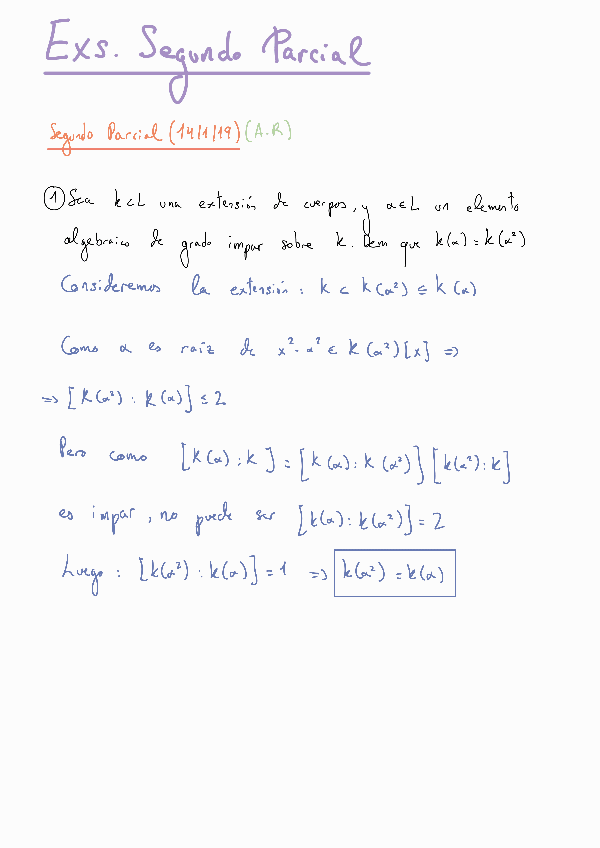 Exs. Segundo Parcial
Segundo Parcial (14/1/19) (A.R)
① Sea k⊂L una extensión de cuerpos, y α∈L un elemento
algebraico de grado impar sobre k. Dem que k(α)=k(α²)
Consideremos la extensión: k ⊂ k(α²) ⊆ k(α)
Como α es raíz de x²-α² ∈ k(α²)[x] ⇒
⇒ [k(α²) : k(α)] ≤ 2
Pero como [k(α) : k] = [k(α) : k(α²)] [k(α²) : k]
es impar, no puede ser [k(α) : k(α²)] = 2
Luego: [k(α²) : k(α)] = 1 ⇒ k(α²) = k(α)